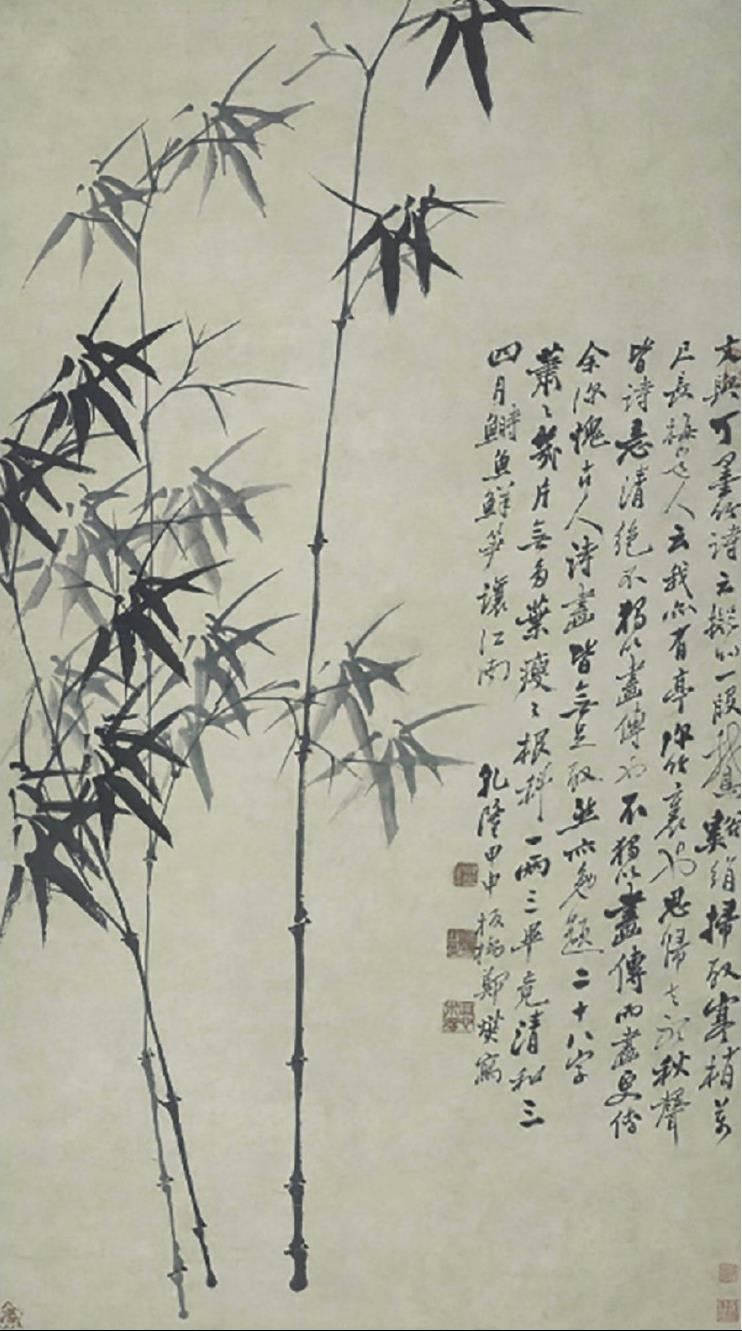 文與可墨竹詩云擬以一段鵝谿絹掃取寒梢萬
尺長梅道人云我亦有亭深竹裏也思歸去聽秋聲
皆詩意清絕不獨以畫傳也不獨以畫傳而畫更傳
余深愧古人詩畫皆無足取然亦勉題二十八字
蕭〻幾片無多葉瘦〻根科一兩三畢竟清和三
四月鰣魚鮮笋讓江南 乾隆甲申板橋鄭燮寫